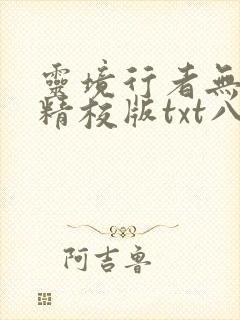 靈境行者無
精校版txt八
阿吉魯